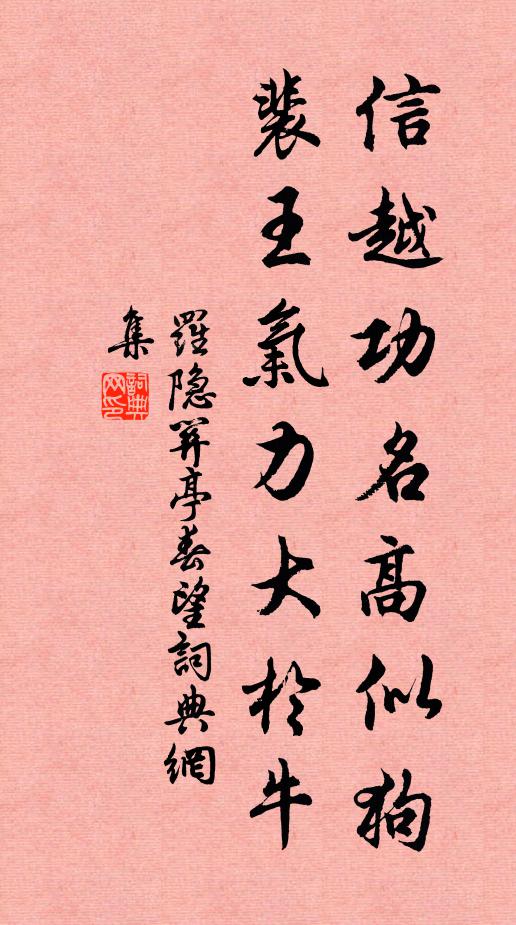 信越功名高似狗
裴王氣力大於牛
羅隱筭亭春望詞典網
集
詞典网印